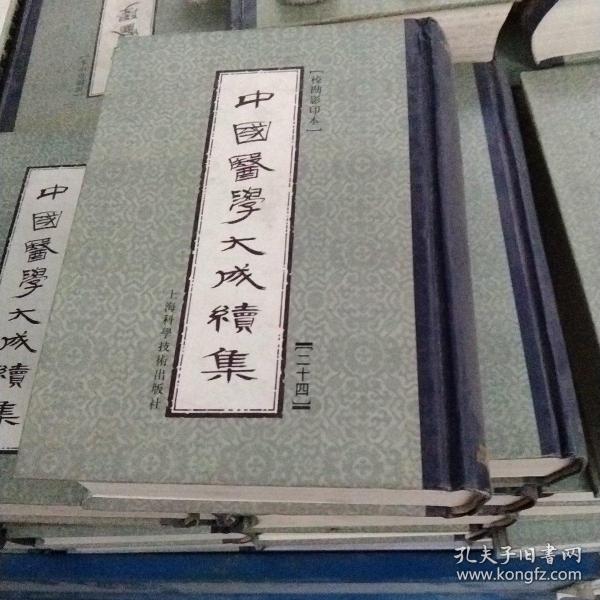 【校勘影印本】
中國醫學大成續集
【二十四】
上海科學技術出版社
中國醫學大成續集
孔夫子旧書网
www.kongfz.com